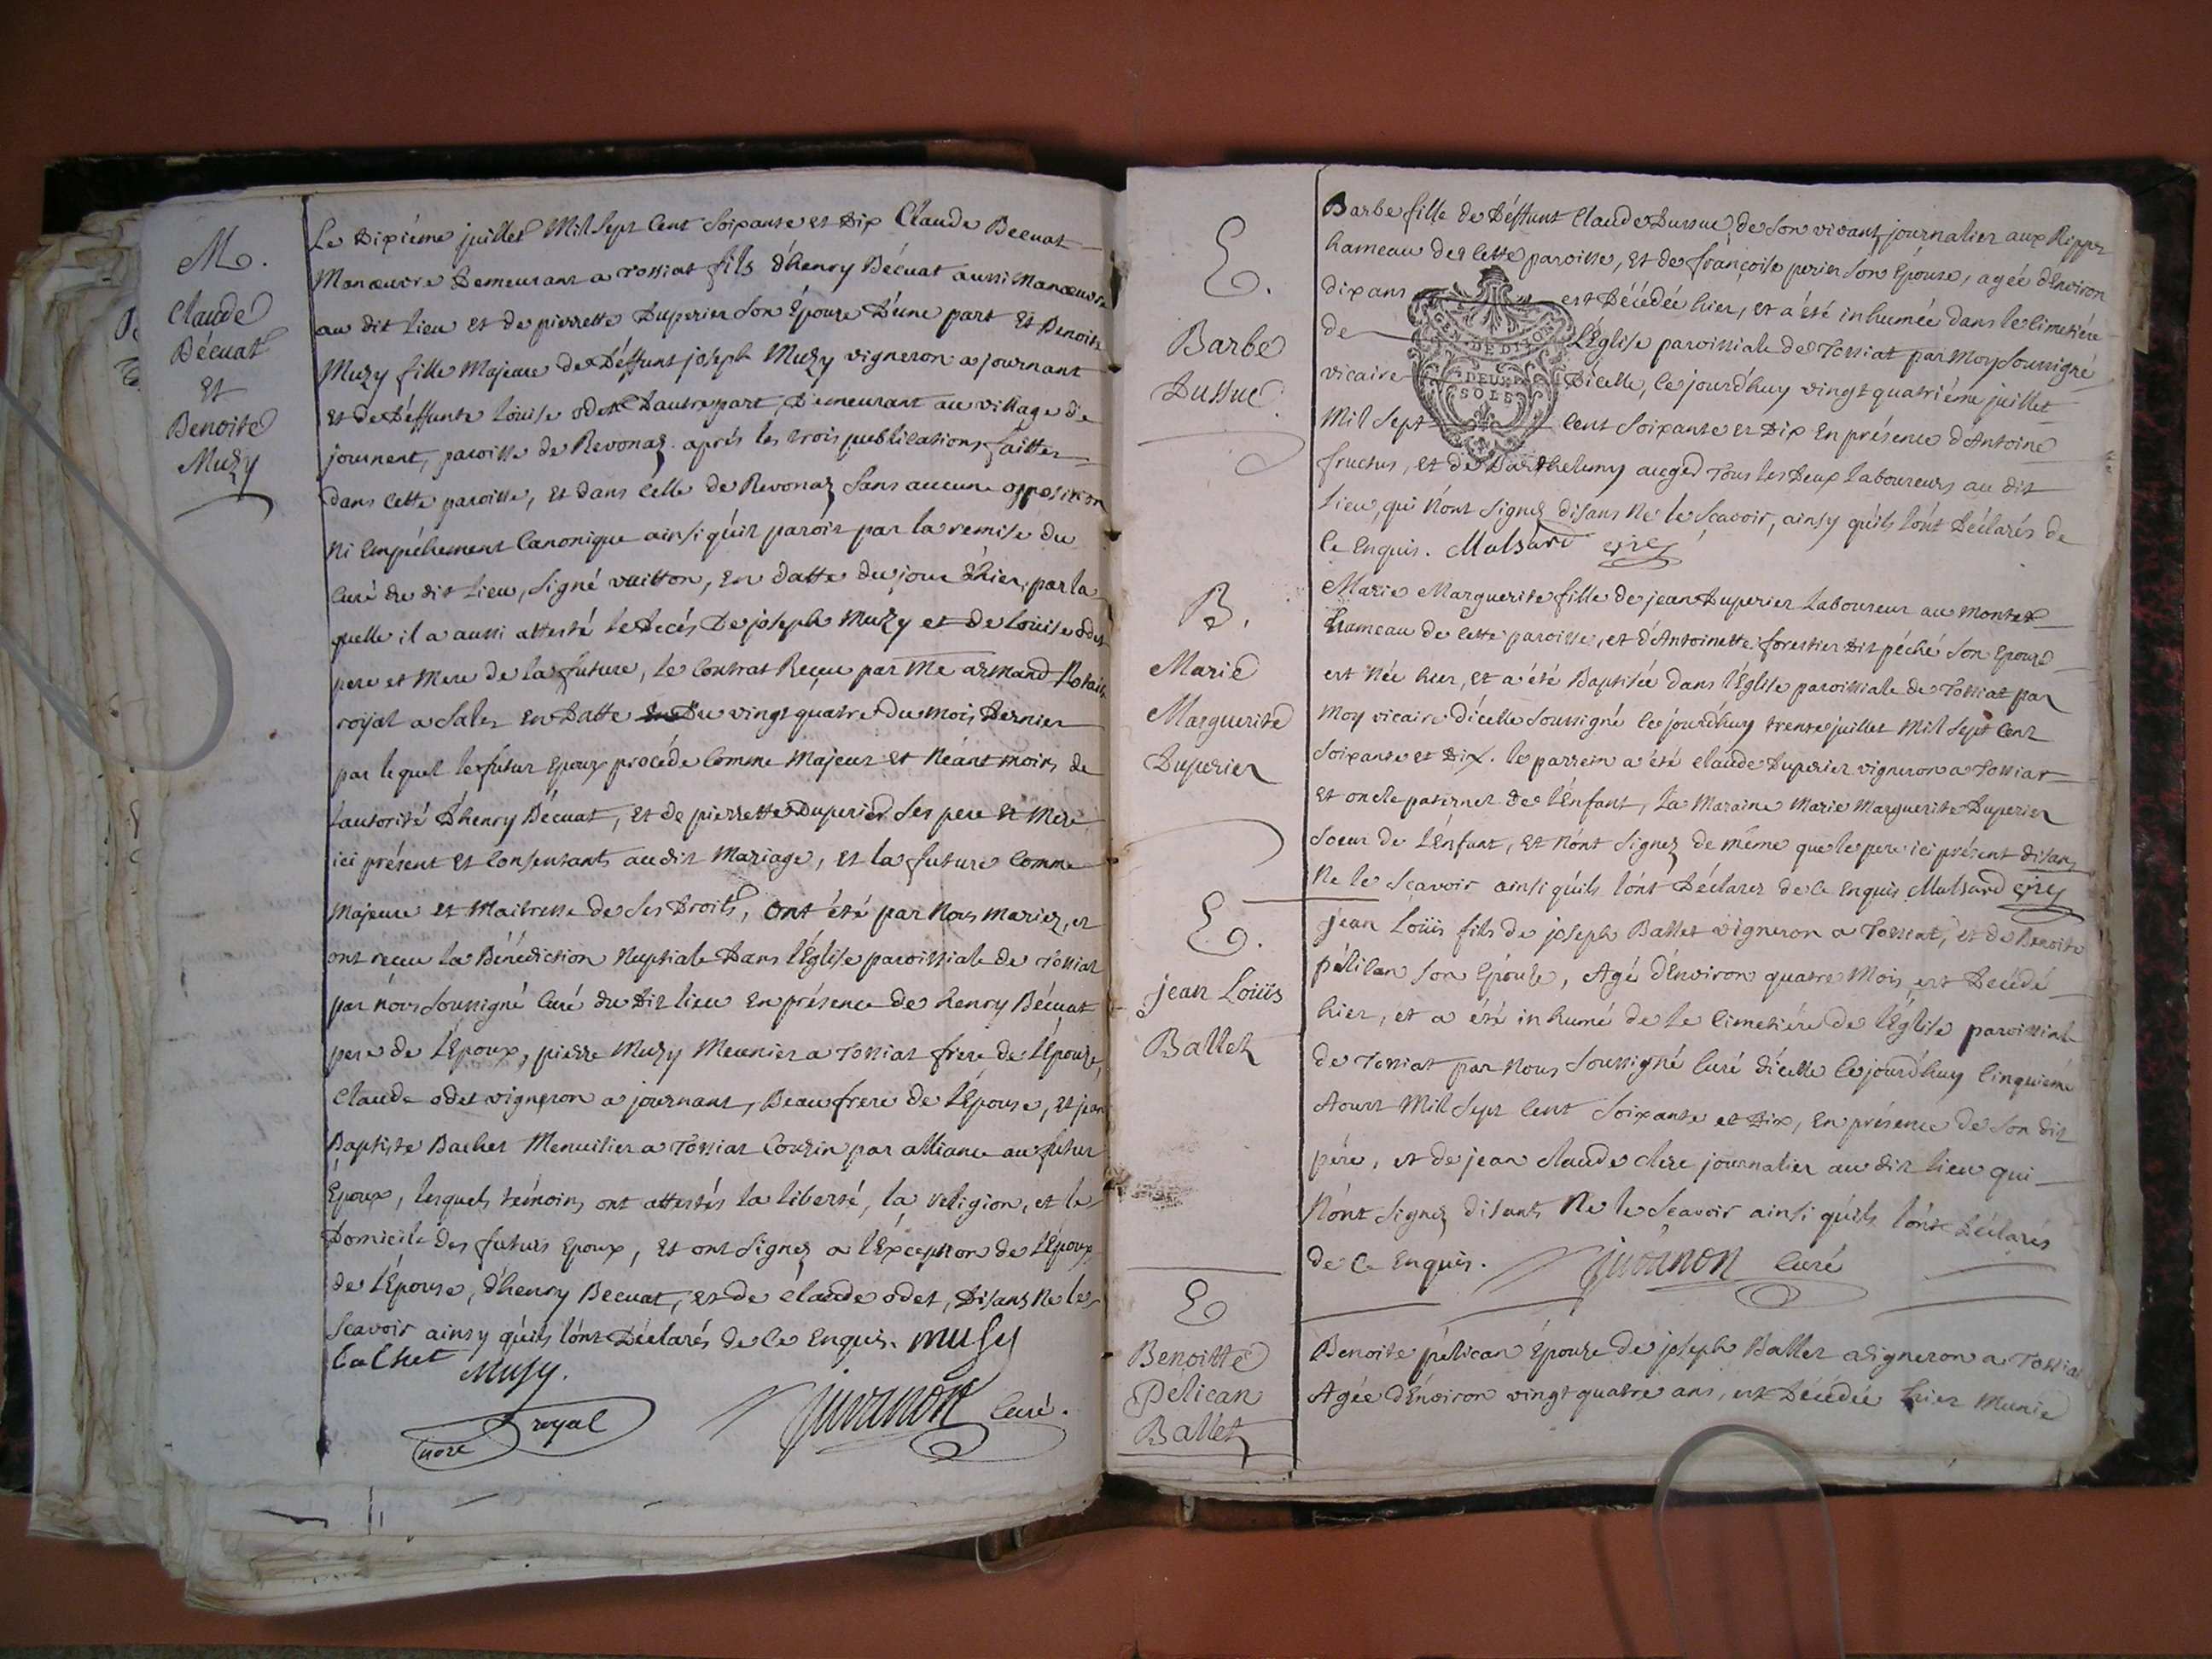 M.
Claude
Bécuat
Et
Benoite
Muzy
Le Dixiéme juillet Mil Sept Cent Soixante et Dix Claude Becuat
Manœuvre Demeurant a Tossiat fils d'henry Bécuat aussi Manœuvre
au dit Lieu et de pierrette Duperier Son Épouse D'une part Et Benoite
Muzy fille Majeure de Déffunt joseph Muzy vigneron a journant
et de Déffunte Loüise odet D'autre part, Demeurant au village de
journent, paroisse de Revonaz. aprés les trois publications faittes
dans Cette paroisse, et dans Celle de Revonaz Sans aucune opposition
Ni Empéchement Canonique ainsi qu'il paroit par la remise du
Curé du dit Lieu, Signé vuitton, En datte du jour d'hier, par la
quelle il a aussi attesté le Decés De joseph Muzy et de Loüise odet
pere et Mere de la future, le Contrat Reçeu par Me armand Notaire
royal a Sales En Datte Du vingt quatre Du mois Dernier
par lequel le futur Epoux procéde Comme Majeur et Néantmoins de
L'autorité D'henry Bécuat, et de pierrette Duperier Ses pere et Mere
ici présent et Consentants audit Mariage, et la future Comme
Majeure et Maitresse de Ses Droits, ont été par Nous mariez, et
ont reçeu la Bénédiction Nuptiale Dans l'Église paroissiale de Tossiat
par nous Soussigné Curé du Dit lieu En présence de henry Bécuat
pere de l'Époux, pierre Muzy Meunier a Tossiat frere de l'Épouse,
Claude odet vigneron a journant, Beaufrere de l'Épouse, et jean
Baptiste Bachet Menuisier a Tossiat Couzin par alliance au futur
Époux, lesquels témoins ont attestés la liberté, la religion, et le
Domicile des futurs Epoux, et ont Signez a l'Exception de l'Époux
de l'Épouse, d'henry Becuat, et de claude odet, Disans Ne le
Scavoir ainsy qu'ils l'ont Déclarés de Ce Enquis. Musy
Bachet Musy.
royal
juvanon Curé.
E.
Barbe
Dussuc.
Barbe fille de Déffunt Claude Dussuc, de Son vivant journalier aux Rippes
hameau de Cette paroisse, et de françoise perier Son Épouse, agée d'Environ
dix ans est Décédée hier, et a été inhumée dans le Cimetiére
de L'Église paroissiale de Tossiat par Moy Soussigné
vicaire D'icelle, Ce jourd'huy vingt quatriéme juillet
Mil Sept Cent Soixante et Dix En présence d'Antoine
fructus, et de Barthelemy auged Tous les Deux Laboureurs au dit
Lieu, qui N'ont Signez disans Ne le Scavoir, ainsy qu'ils l'ont Déclarés de
Ce Enquis. Malsard vire
GEN. DE DIJON
DEUX
SOLS
B.
Marie
Marguerite
Duperier
Marie Marguerite fille de jean Duperier Laboureur au Montet
hameau de Cette paroisse, et d'Antoinette forestier Dit péché Son Epouse
est Née hier, et a été Baptisée dans l'Église paroissiale de Tossiat par
Moy vicaire d'icelle Soussigné Ce jourd'huy trente juillet Mil Sept Cent
Soixante et Dix. le parrein a été claude Duperier vigneron a Tossiat
Et oncle paternel de l'Enfant, La Maraine Marie Marguerite Duperier
Soeur de L'Enfant, et N'ont Signez de même que le pere ici présent disans
Ne le Scavoir ainsi qu'ils l'ont Déclarez de Ce Enquis Malsard vire
E.
jean Loüis
Ballet
jean Loüis fils de joseph Ballet vigneron a Tossiat, et de Benoite
pélican Son Épouse, Agé d'Environ quatre Mois est Decédé
hier, et a été inhumé de le Cimetiére de l'Église paroissiale
de Tossiat par Nous Soussigné Curé d'icelle Ce jourd'huy Cinquiéme
Aoust Mil Sept Cent Soixante et Dix, En présence de Son dit
pére, et de jean claude clerc journalier au dit lieu qui
N'ont Signez disants Ne le Scavoir ainsi qu'ils l'ont Déclarés
de Ce Enquis. juvanon Curé
E
Benoitte
Pélican
Ballet
Benoite pélican Épouse de joseph Ballet vigneron a Tossiat
Agée d'Environ vingt quatre ans, est Décédée hier Munie